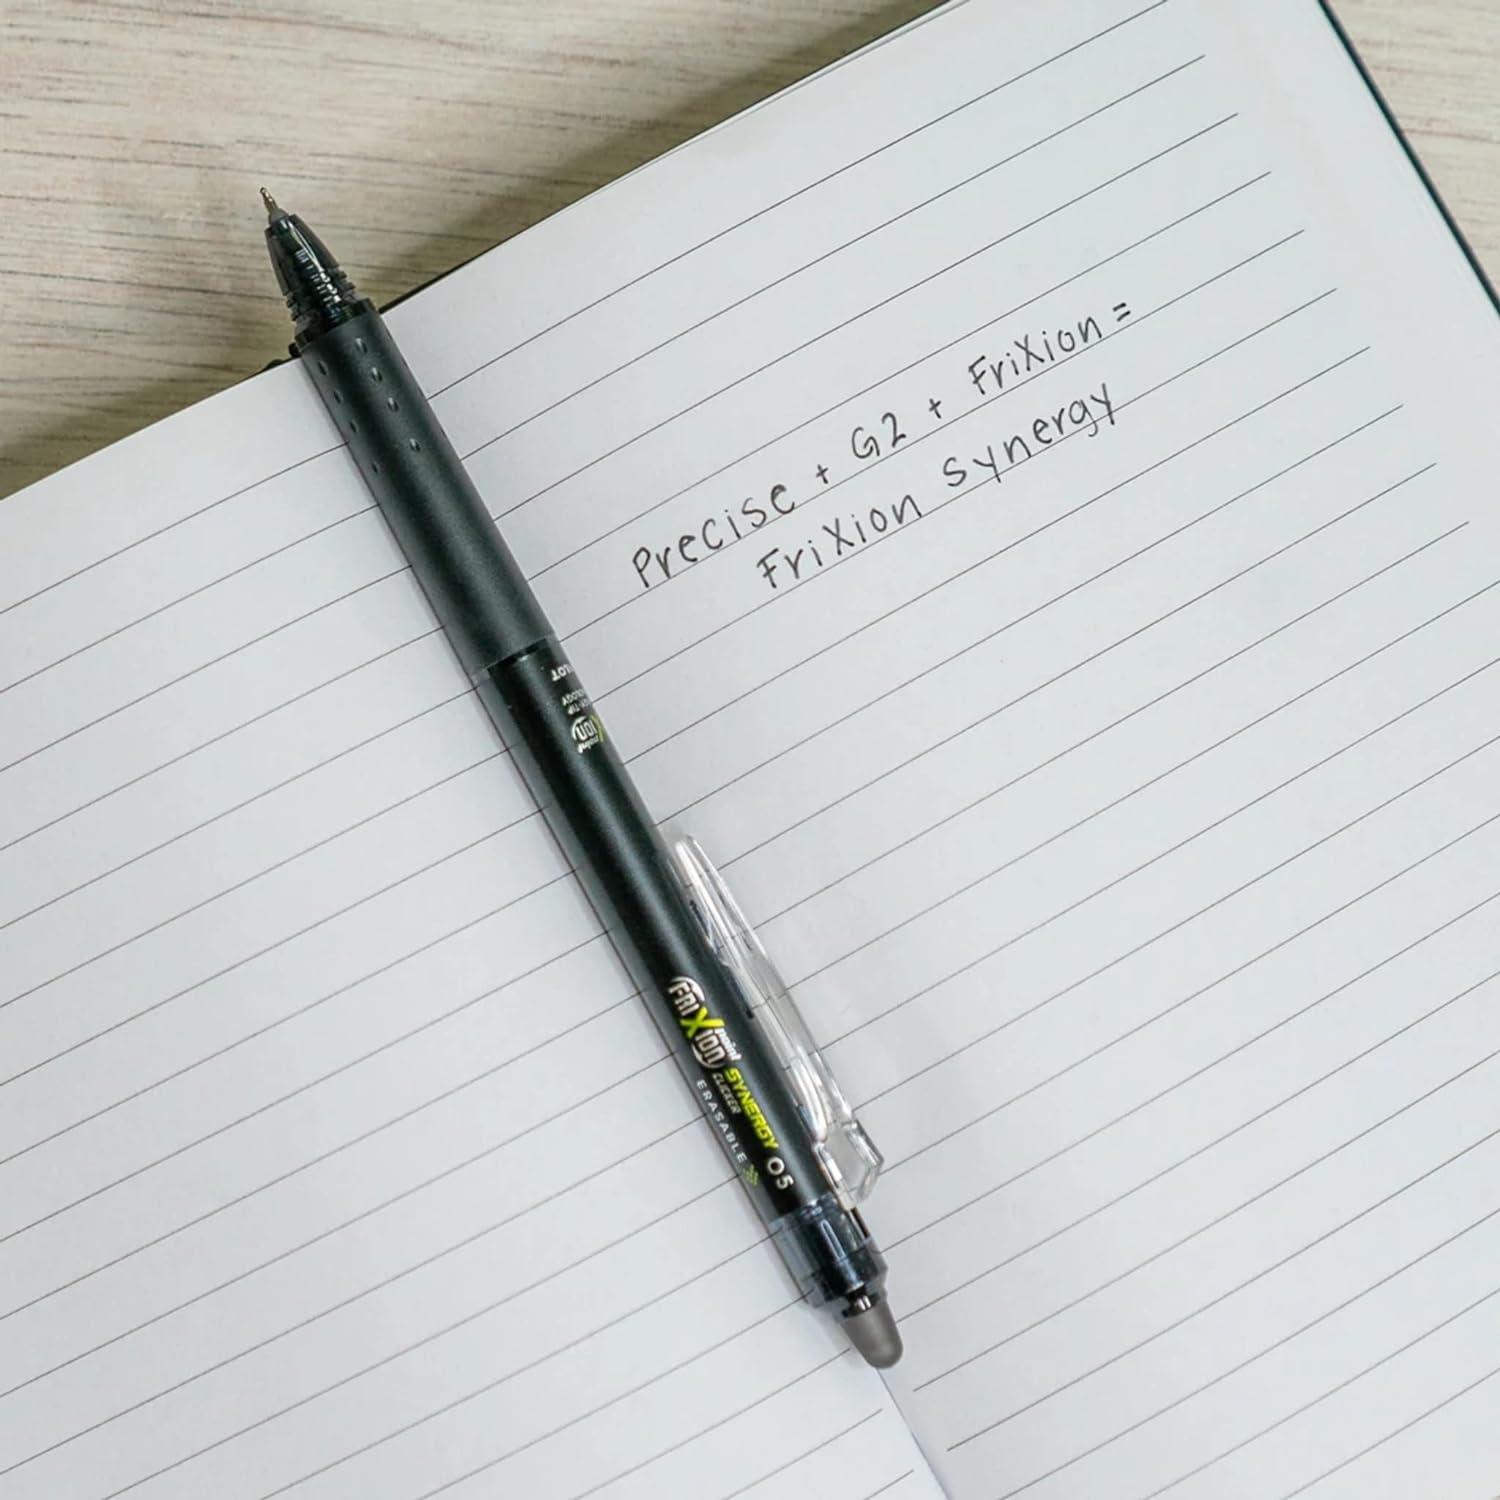 Precise + G2 + FriXion =
FriXion Synergy
FRIXION point
SYNERGY 05
CLICKER
ERASABLE